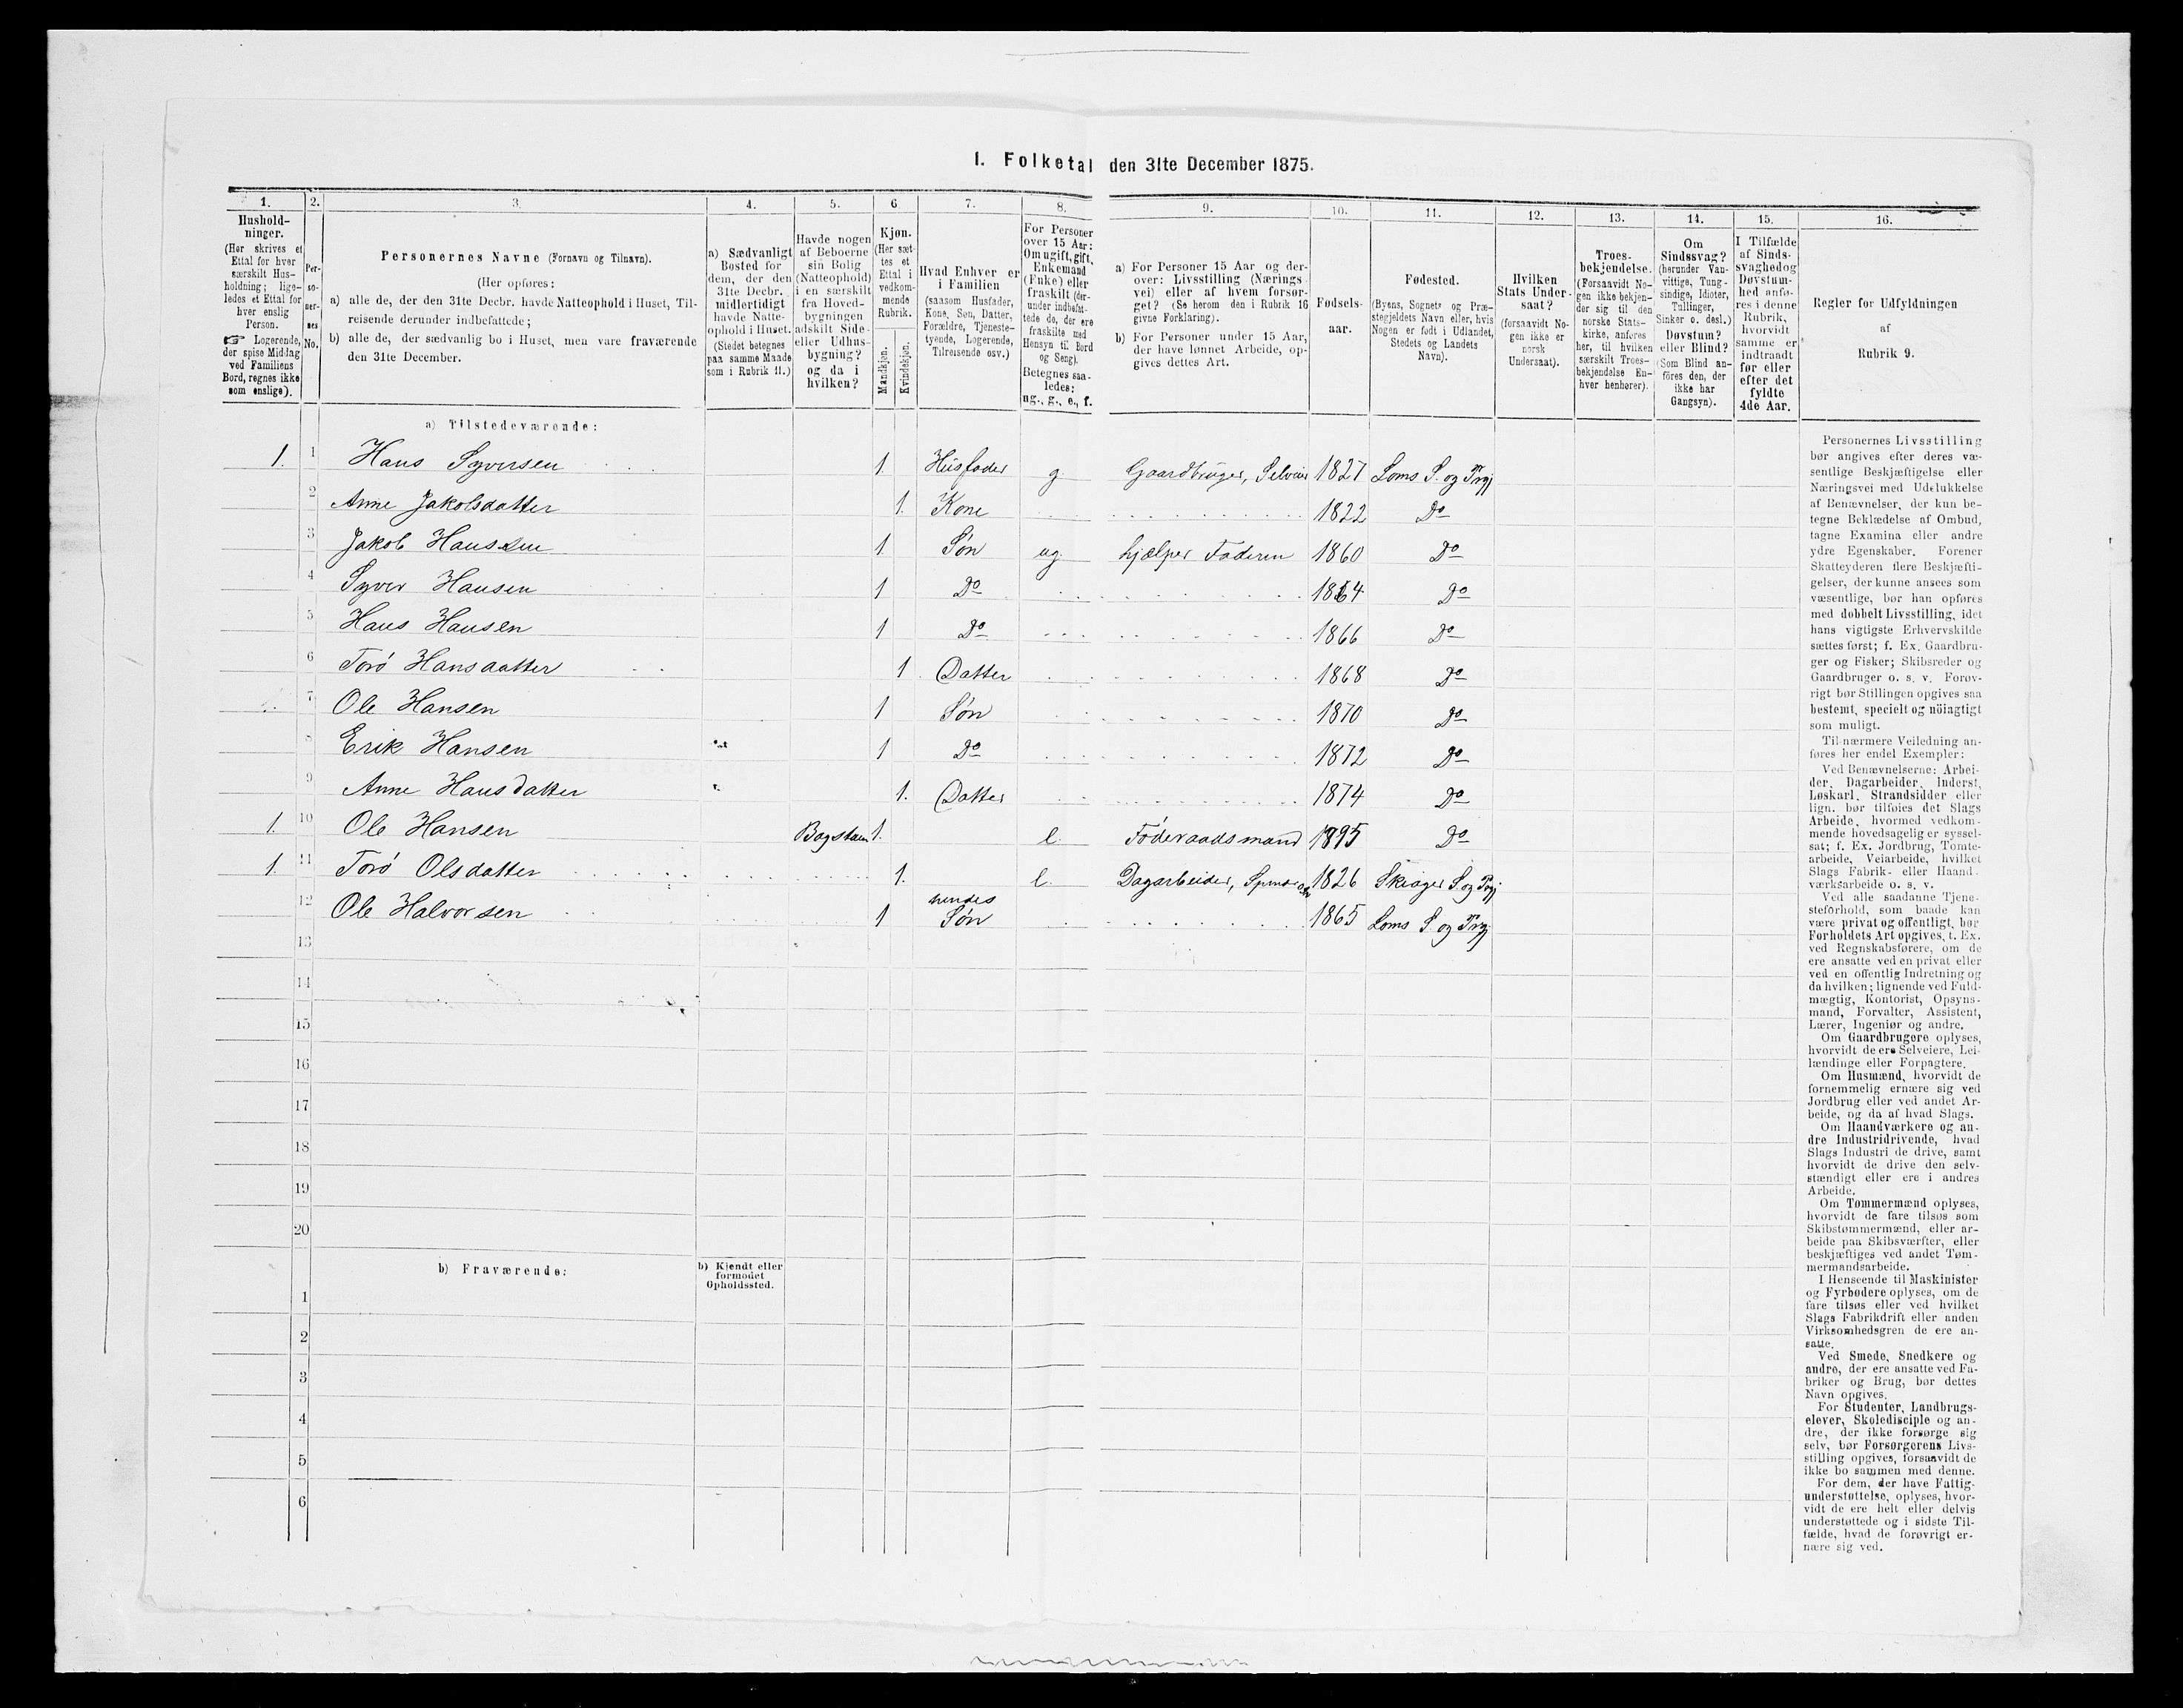 1. Folketal den 31te December 1875.
1. 2. 3. 4. 5. 6 7. 8. 9. 10. 11. 12. 13. 14. 15. 16.
Hushold-
ninger.
(Her skrives et
Ettal for hver
særskilt Hus-
holdning; lige-
ledes et Ettal for
hver enslig
Person.
☞ Logerende,
der spise Middag
ved Familiens
Bord, regnes ikke
som enslige).
Per-
so-
ner-
nes
No.
Personernes Navne (Fornavn og Tilnavn).
(Her opføres:
a) alle de, der den 31te Decbr. havde Natteophold i Huset, Til-
reisende derunder indbefattede;
b) alle de, der sædvanlig bo i Huset, men vare fraværende
den 31te December.
a) Sædvanligt
Bosted for
dem, der den
31te Decbr.
midlertidigt
havde Natte-
ophold i Huset.
(Stedet betegnes
paa samme Maade
som i Rubrik 11.)
Havde nogen
af Beboerne
sin Bolig
(Natteophold)
i en særskilt
fra Hoved-
bygningen
adskilt Side-
eller Udhus-
bygning?
og da i
hvilken?
Kjøn.
(Her sæt-
tes et
Ettal i
vedkom-
mende
Rubrik.
Mandkjøn.
Kvindekjøn.
Hvad Enhver er
i Familien
(saasom Husfader,
Kone, Søn, Datter,
Forældre, Tjeneste-
tyende, Logerende,
Tilreisende osv.)
For Personer
over 15 Aar:
Om ugift, gift,
Enkemand
(Enke) eller
fraskilt (der-
under indbefat-
tede de, der ere
fraskilte med
Hensyn til Bord
og Seng).
Betegnes saa-
ledes:
ug., g., e., f.
a) For Personer 15 Aar og der-
over: Livsstilling (Nærings-
vei) eller af hvem forsør-
get? (Se herom den i Rubrik 16
givne Forklaring).
b) For Personer under 15 Aar,
der have lønnet Arbeide, op-
gives dettes Art.
Fødsels-
aar.
Fødested.
(Byens, Sognets og Præ-
stegjeldets Navn eller, hvis
Nogen er født i Udlandet,
Stedets og Landets
Navn).
Hvilken
Stats Under-
saat?
(forsaavidt No-
gen ikke er
norsk
Undersaat).
Troes-
bekjendelse.
(Forsaavidt No-
gen ikke bekjen-
der sig til den
norske Stats-
kirke, anføres
her, til hvilken
særskilt Troes-
bekjendelse En-
hver henhører).
Om
Sindssvag?
(herunder Van-
vittige, Tung-
sindige, Idioter,
Tullinger,
Sinker o. desl.)
Døvstum?
eller Blind?
(Som Blind an-
føres den, der
ikke har
Gangsyn).
I Tilfælde
af Sinds-
svaghed og
Døvstum-
hed anfø-
res i denne
Rubrik,
hvorvidt
samme er
indtraadt
før eller
efter det
fyldte
4de Aar.
Regler for Udfyldningen
af
Rubrik 9.
a) Tilstedeværende:
1. 1 Hans Syversen 1. Husfader g. Gaardbruger, Selveier 1827 Loms S. og Prgj
2 Anne Jakobsdatter 1. Kone 1822 Do
3 Jakob Hansen 1 Søn ug. hjælper Faderen 1860 Do
4 Syver Hansen 1 Do 1864 Do
5 Hans Hansen 1 Do 1866 Do
6 Torö Hansdatter 1. Datter 1868 Do
7 Ole Hansen 1 Søn 1870 Do
8 Erik Hansen 1 Do 1872 Do
9 Anne Hansdatter 1. Datter 1874 Do
1. 10 Ole Hansen 1. e. Föderaadsmand 1795 Do
1. 11 Torö Olsdatter 1. e. Dagarbeider, 1826 Skiager S. og Prgj
12 Ole Halvorsen 1 hendes Søn 1865 Loms S. og Prgj
13
14
15
16
17
18
19
20
b) Fraværende:
b) Kjendt eller
formodet
Opholdssted.
1
2
3
4
5
6
Personernes Livsstilling
bør angives efter deres væ-
sentlige Beskjæftigelse eller
Næringsvei med Udelukkelse
af Benævnelser, der kun be-
tegne Beklædelse af Ombud,
tagne Examina eller andre
ydre Egenskaber. Forener
Skatteyderen flere Beskjæfti-
gelser, der kunne ansees som
væsentlige, bør han opføres
med dobbelt Livsstilling, idet
hans vigtigste Erhvervskilde
sættes først; f. Ex. Gaardbru-
ger og Fisker; Skibsreder og
Gaardbruger o. s. v. Forøv-
rigt bør Stillingen opgives saa
bestemt, specielt og nöiagtigt
som muligt.
Til nærmere Veiledning an-
føres her endel Exempler:
Ved Benævnelserne: Arbei-
der, Dagarbeider, Inderst,
Løskarl, Strandsidder eller
lign. bør tilføies det Slags
Arbeide, hvormed vedkom-
mende hovedsagelig er syssel-
sat; f. Ex. Jordbrug, Tomte-
arbeide, Veiarbeide, hvilket
Slags Fabrik- eller Haand-
værksarbeide o. s. v.
Ved alle saadanne Tjene-
steforhold, som baade kan
være privat og offentligt, bør
Forholdets Art opgives, t. Ex.
ved Regnskabsførere, om de
ere ansatte ved en privat eller
ved en offentlig Indretning og
da hvilken; lignende ved Fuld-
mægtig, Kontorist, Opsyns-
mand, Forvalter, Assistent,
Lærer, Ingeniør og andre.
Om Gaardbrugere oplyses,
hvorvidt de ere Selveiere, Lei-
lændinge eller Forpagtere.
Om Husmænd, hvorvidt de
fornemmelig ernære sig ved
Jordbrug eller ved andet Ar-
beide, og da af hvad Slags.
Om Haandværkere og an-
dre Industridrivende, hvad
Slags Industri de drive, samt
hvorvidt de drive den selv-
stændigt eller ere i andres
Arbeide.
Om Tømmermænd oplyses,
hvorvidt de fare tilsøs som
Skibstømmermænd, eller ar-
beide paa Skibsværfter, eller
beskjæftiges ved andet Tøm-
mermandsarbeide.
I Henseende til Maskinister
og Fyrbødere oplyses, om de
fare tilsøs eller ved hvilket
Slags Fabrikdrift eller anden
Virksomhedsgren de ere an-
satte.
Ved Smede, Snedkere og
andre, der ere ansatte ved Fa-
briker og Brug, bør dettes
Navn opgives.
For Studenter, Landbrugs-
elever, Skoledisciple og an-
dre, der ikke forsørge sig
selv, bør Forsørgerens Livs-
stilling opgives, forsaavidt de
ikke bo sammen med denne.
For dem, der have Fattig-
understøttelse, oplyses, hvor-
vidt de ere helt eller delvis
understøttede og i sidste Til-
fælde, hvad de forøvrigt er-
nære sig ved.